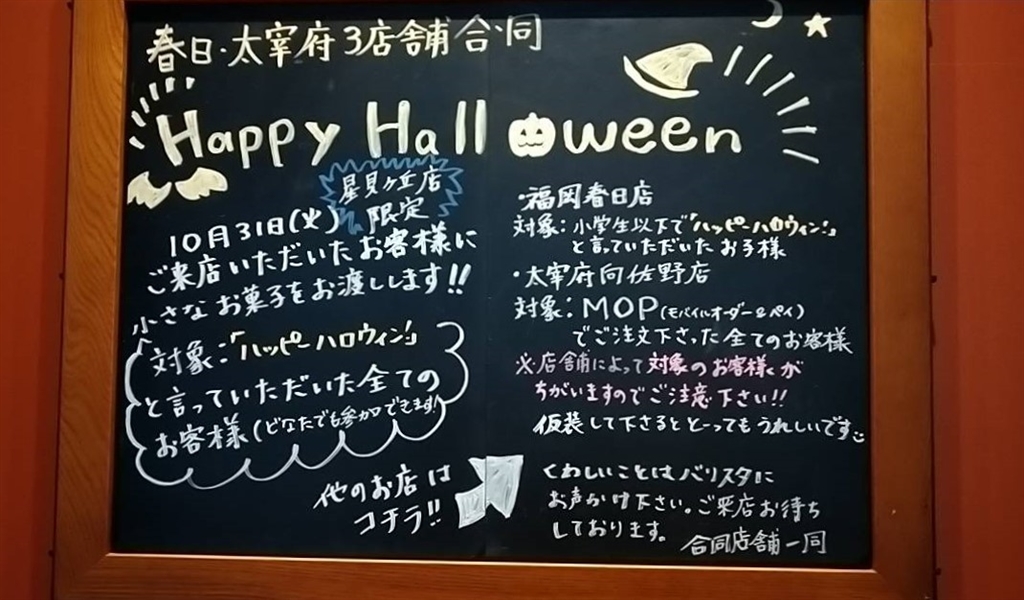 春日・太宰府3店舗合同
Happy Halloween
星見ヶ丘店
限定
10月31日(火)
ご来店いただいたお客様に
小さなお菓子をお渡しします!!
対象:「ハッピーハロウィン!」
と言っていただいた全ての
お客様(どなたでも参加できます!
他のお店は
コチラ!!
・福岡春日店
対象:小学生以下で「ハッピーハロウィン!」
と言っていただいたお子様
・太宰府向佐野店
対象:MOP(モバイルオーダー&ペイ)
でご注文下さった全てのお客様
※店舗によって対象のお客様が
ちがいますのでご注意下さい!!
仮装して下さるととーってもうれしいです
くわしいことはバリスタに
お声かけ下さい。ご来店お待ち
しております。
合同店舗一同